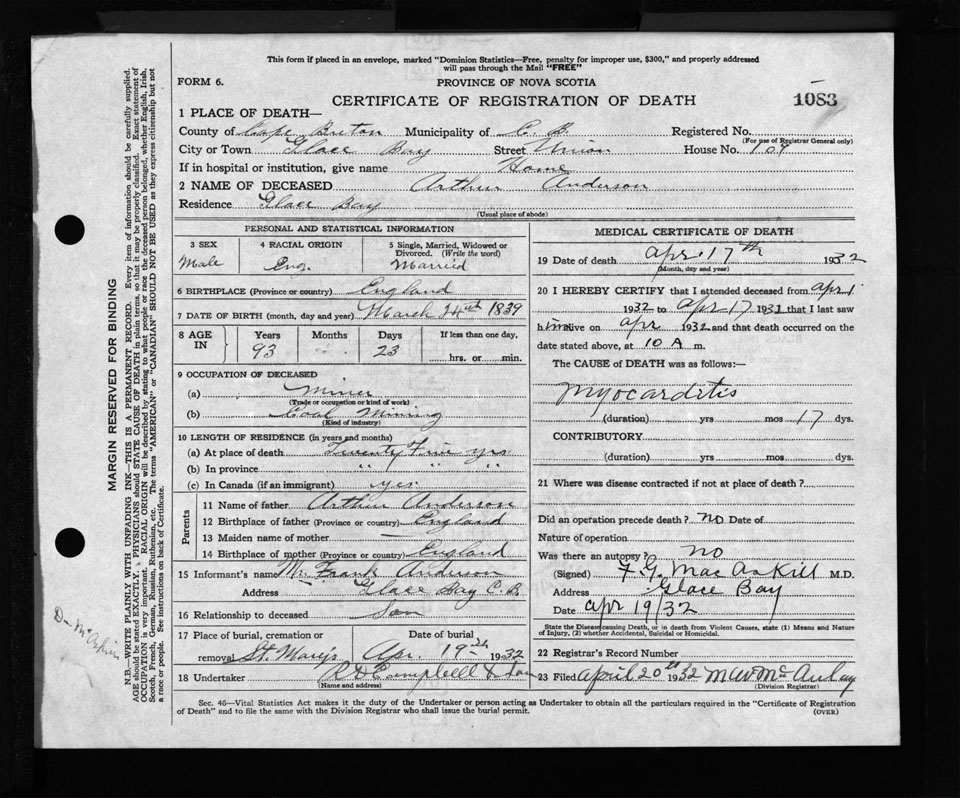 This form if placed in an envelope, marked "Dominion Statistics—Free, penalty for improper use, $300," and properly addressed
will pass through the Mail "FREE"
FORM 6.
PROVINCE OF NOVA SCOTIA
CERTIFICATE OF REGISTRATION OF DEATH
1083
1 PLACE OF DEATH—
County of Cape Breton Municipality of C. B. Registered No.
(For use of Registrar General only)
City or Town Glace Bay Street Union House No. 109
If in hospital or institution, give name Home
2 NAME OF DECEASED Arthur Anderson
Residence Glace Bay
(Usual place of abode)
PERSONAL AND STATISTICAL INFORMATION
3 SEX 4 RACIAL ORIGIN 5 Single, Married, Widowed or Divorced. (Write the word)
Male Eng. Married
6 BIRTHPLACE (Province or country) England
7 DATE OF BIRTH (month, day and year) March 24th 1839
8 AGE IN Years Months Days If less than one day,
93 23 hrs. or min.
9 OCCUPATION OF DECEASED
(a) Miner
(Trade or occupation or kind of work)
(b) Coal Mining
(Kind of industry)
10 LENGTH OF RESIDENCE (in years and months)
(a) At place of death Twenty Five yrs
(b) In province " " "
(c) In Canada (if an immigrant) yes
Parents
11 Name of father Arthur Anderson
12 Birthplace of father (Province or country) England
13 Maiden name of mother —
14 Birthplace of mother (Province or country) England
15 Informant's name Mr. Frank Anderson
Address Glace Bay C. B.
16 Relationship to deceased Son
17 Place of burial, cremation or removal St. Mary's Date of burial Apr. 19th 1932
18 Undertaker R D Campbell & Son
(Name and address)
MEDICAL CERTIFICATE OF DEATH
19 Date of death apr. 17th 1932
(Month, day and year)
20 I HEREBY CERTIFY that I attended deceased from apr 1
1932 to apr 17 1932 that I last saw
him alive on apr 1932 and that death occurred on the
date stated above, at 10 A m.
The CAUSE of DEATH was as follows:—
myocarditis
(duration) yrs mos 17 dys.
CONTRIBUTORY
(duration) yrs mos dys.
21 Where was disease contracted if not at place of death?
Did an operation precede death? no Date of
Nature of operation
Was there an autopsy? no
(Signed) F. G. MacAskill M.D.
Address Glace Bay
Date apr 19/32
State the Disease causing Death, or in death from Violent Causes, state (1) Means and Nature
of Injury, (2) whether Accidental, Suicidal or Homicidal.
22 Registrar's Record Number
23 Filed April 20th 1932 McAulay
(Division Registrar)
Sec. 46—Vital Statistics Act makes it the duty of the Undertaker or person acting as Undertaker to obtain all the particulars required in the "Certificate of Registration
of Death" and to file the same with the Division Registrar who shall issue the burial permit.
(OVER)
MARGIN RESERVED FOR BINDING
N.B.—WRITE PLAINLY WITH UNFADING INK—THIS IS A PERMANENT RECORD. Every item of information should be carefully supplied.
AGE should be stated EXACTLY. PHYSICIANS should STATE CAUSE OF DEATH in plain terms, so that it may be properly classified. Exact statement of
OCCUPATION is very important. RACIAL ORIGIN will be described by stating to what people or race the deceased person belonged, whether English, Irish,
Scotch, French, German, Russian, Ruthenian, etc. The terms "AMERICAN" or "CANADIAN" SHOULD NOT BE USED as they express citizenship but not
a race or people. See instructions on back of Certificate.